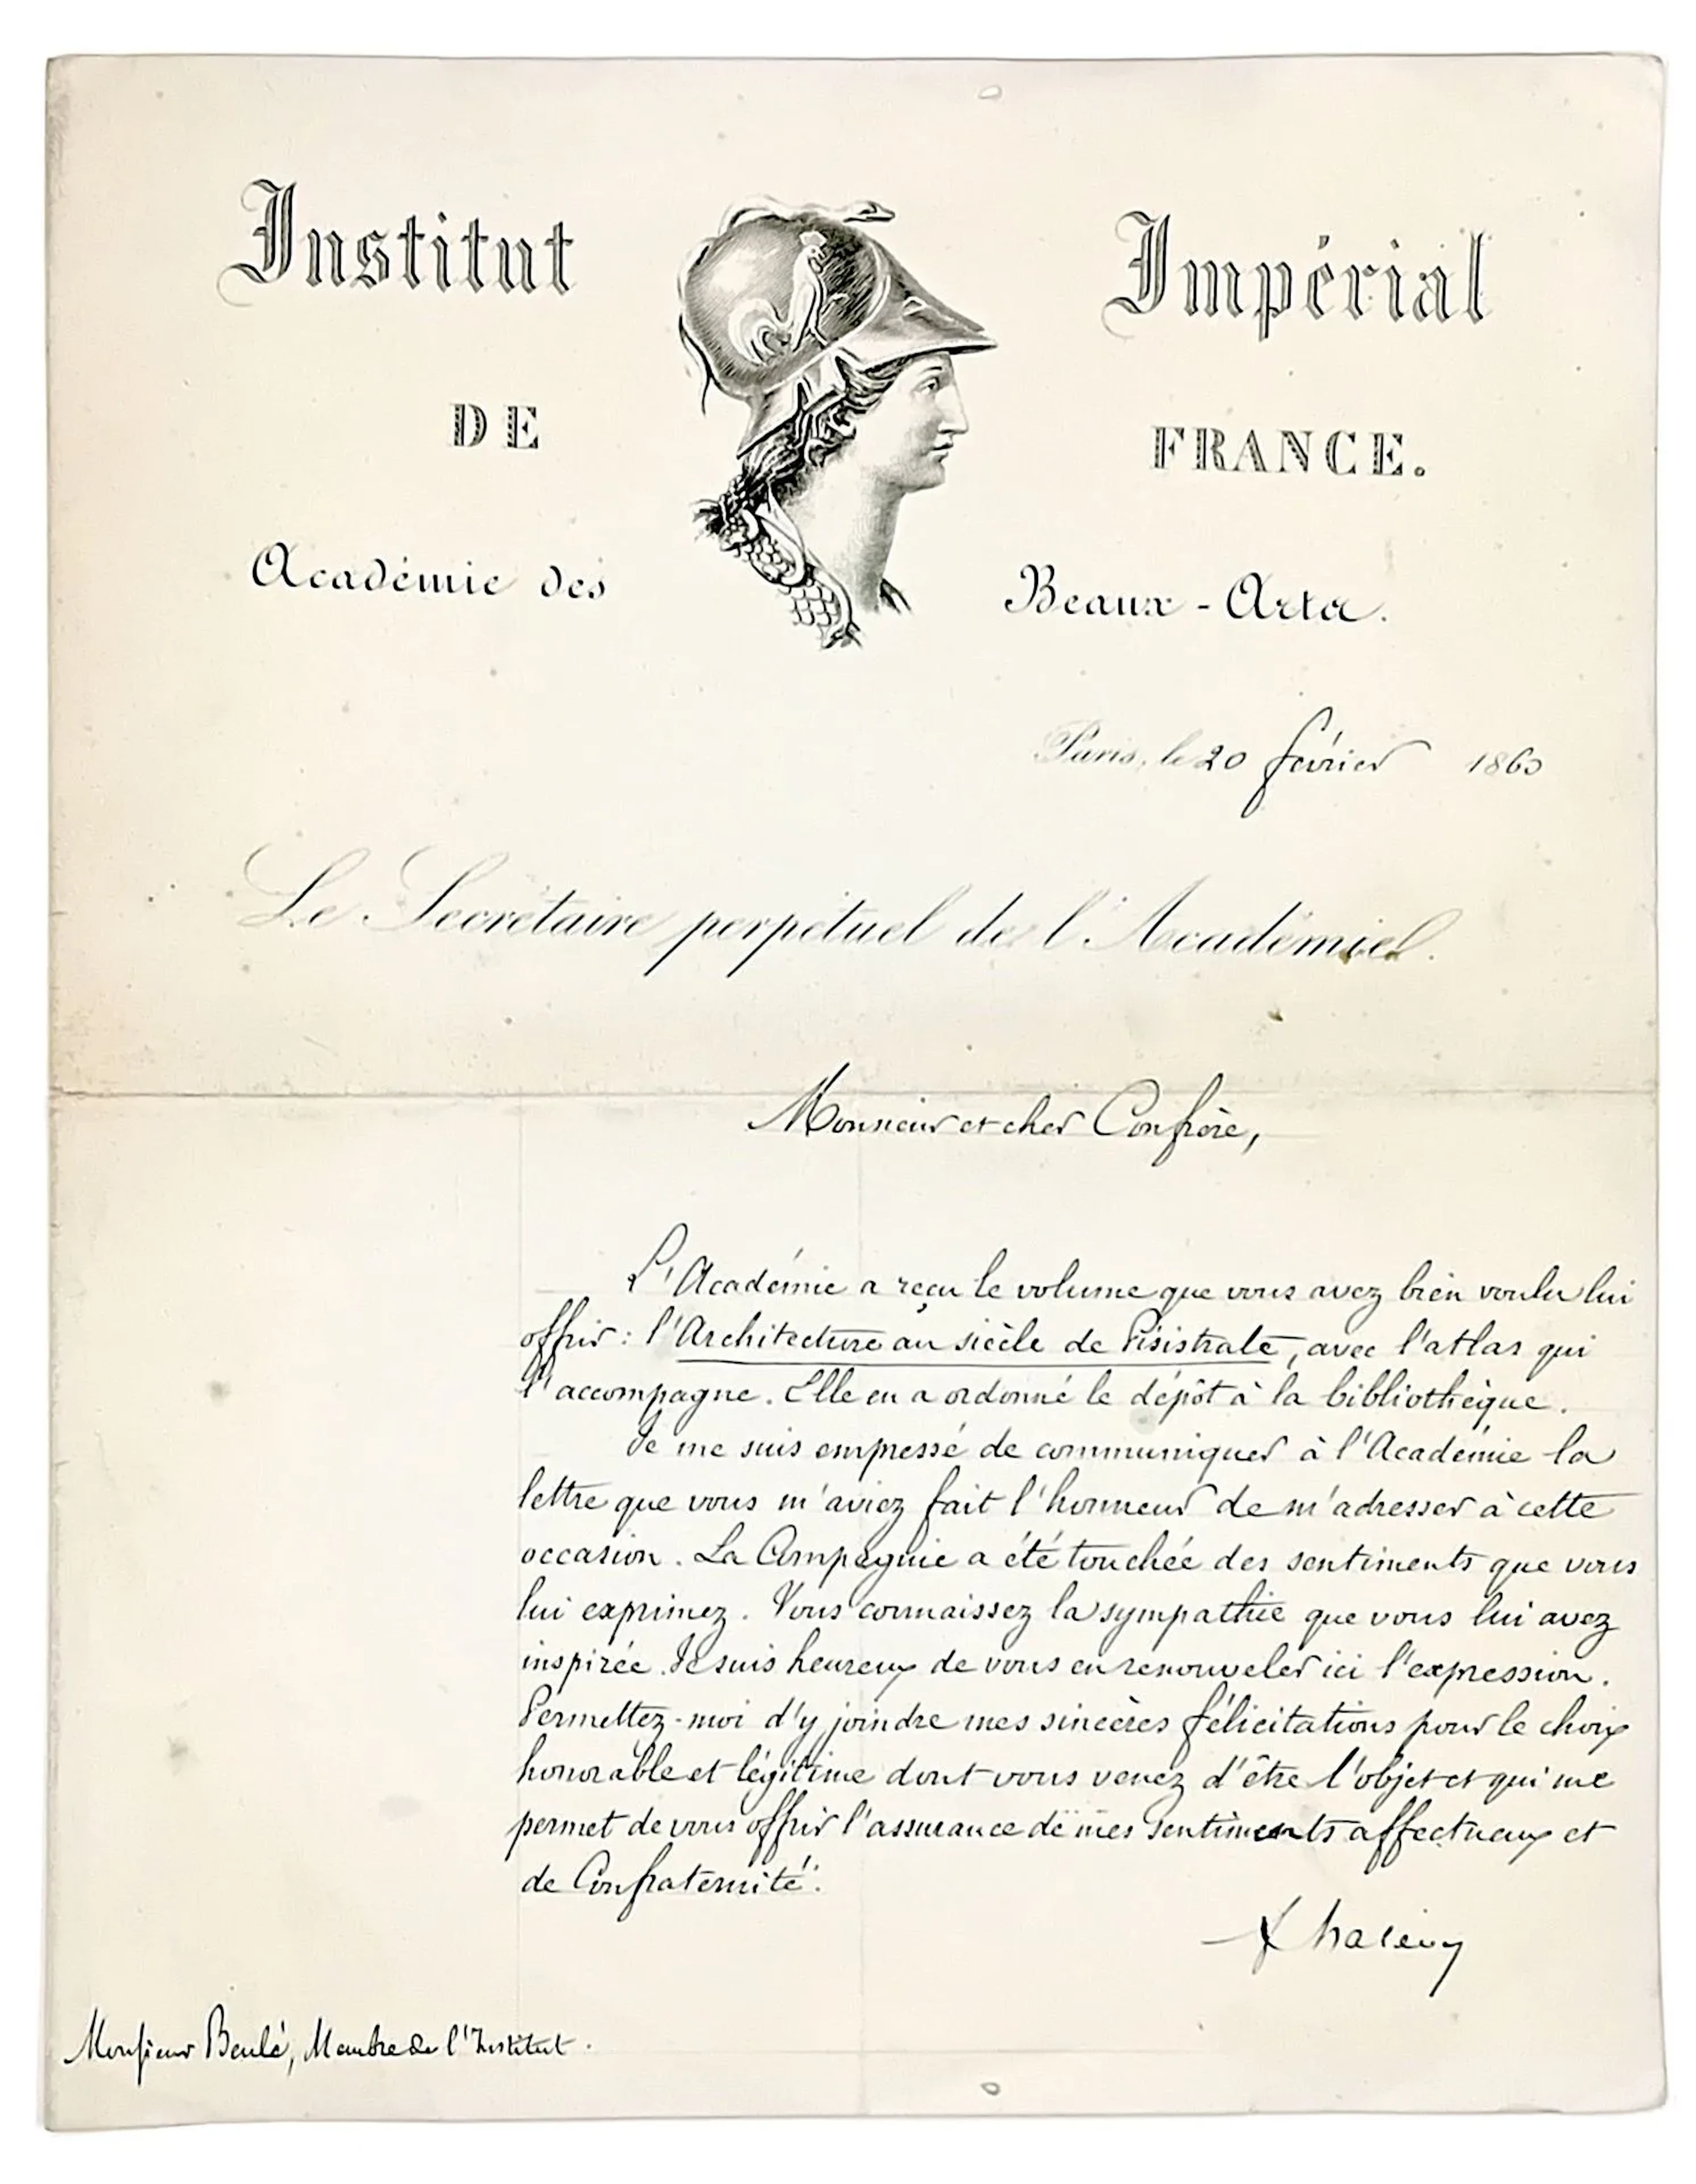 Institut Impérial
DE FRANCE.
Académie des Beaux-Arts.
Paris, le 20 février 1860
Le Secrétaire perpétuel de l'Académie.
Monsieur et cher Confrère,
L'Académie a reçu le volume que vous avez bien voulu lui
offrir : l'Architecture au siècle de Pisistrate, avec l'atlas qui
l'accompagne. Elle en a ordonné le dépôt à la bibliothèque.
Je me suis empressé de communiquer à l'Académie la
lettre que vous m'aviez fait l'honneur de m'adresser à cette
occasion. La Compagnie a été touchée des sentiments que vous
lui exprimez. Vous connaissez la sympathie que vous lui avez
inspirée. Je suis heureux de vous en renouveler ici l'expression.
Permettez-moi d'y joindre mes sincères félicitations pour le choix
honorable et légitime dont vous venez d'être l'objet et qui me
permet de vous offrir l'assurance de mes sentiments affectueux et
de Confraternité.
F halévy
Monsieur Beulé, Membre de l'Institut.